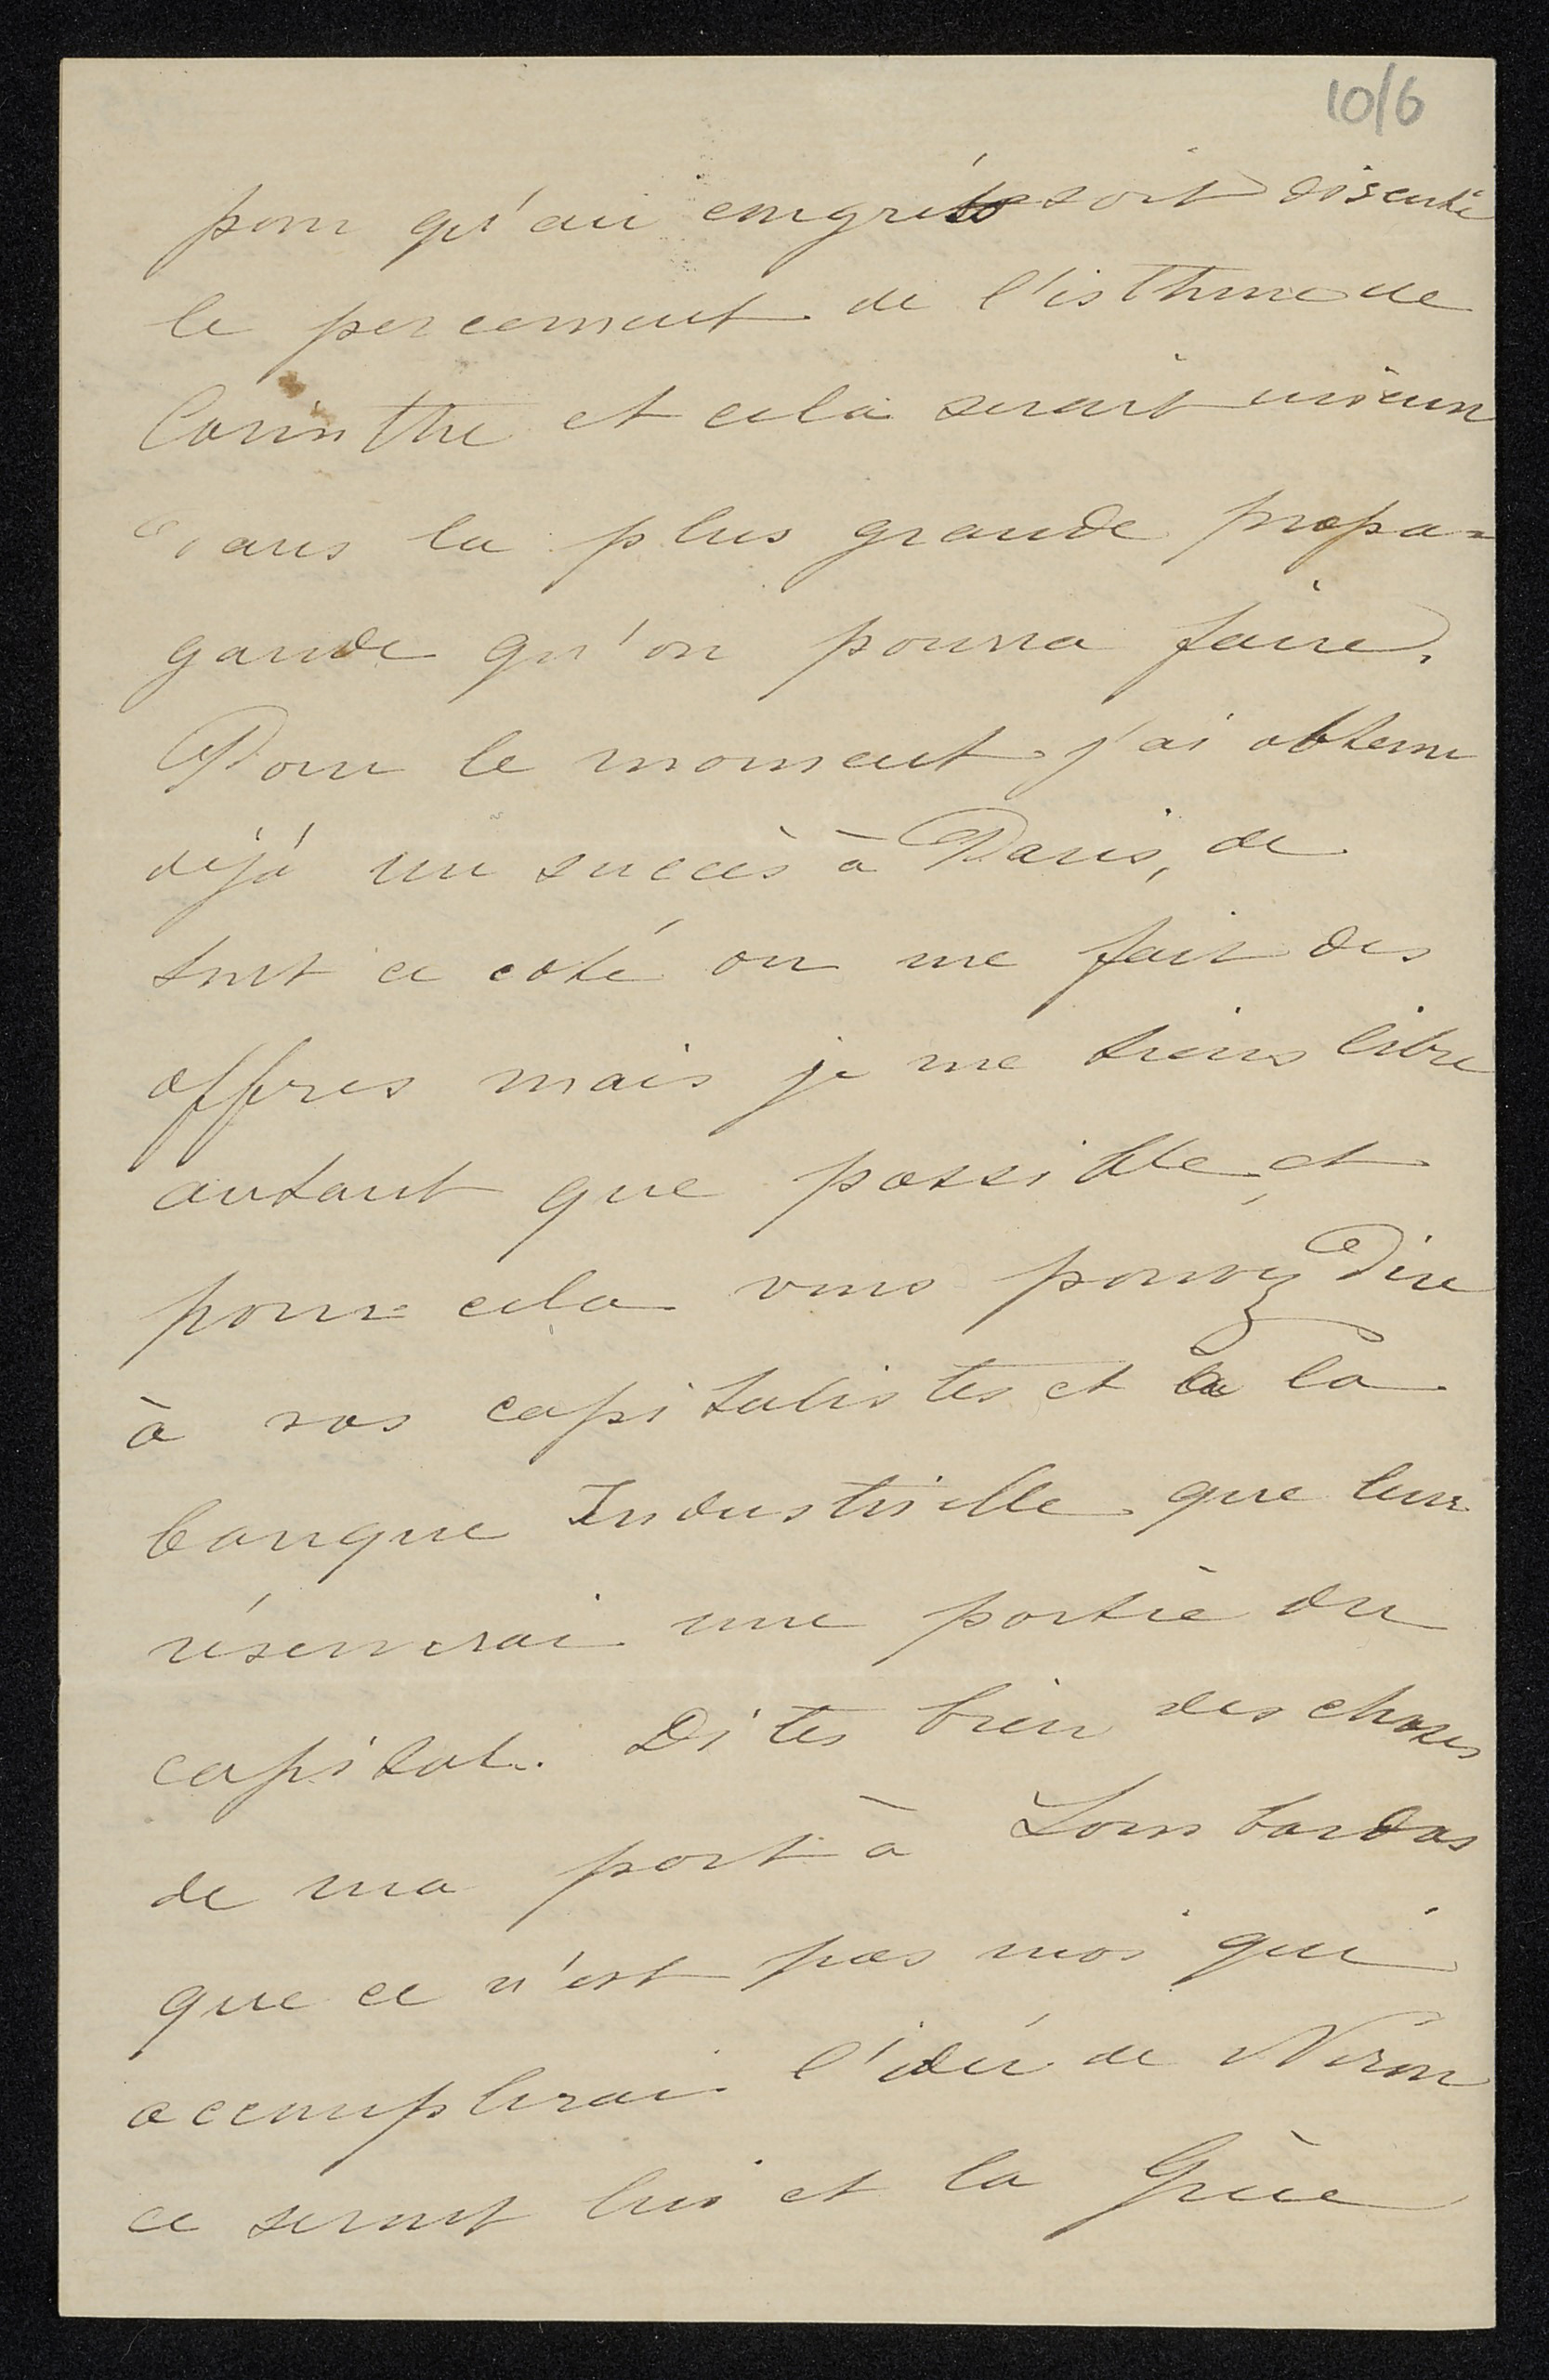 10/6
pour qu'au congrès soit discuté
le percement de l'isthme de
Corinthe et cela serait mieux
dans la plus grande propa=
gande qu'on pourra faire.
Pour le moment j'ai obtenu
déjà un succès à Paris, de
tout ce coté on me fait des
offres mais je me tiens libre
autant que possible, et
pour cela vous pouvez Dire
à vos capitalistes et à la
banque Industrielle que leur
réserverai une partie du
capital. Dites bien des choses
de ma part à Lombardos
que ce n'est pas moi qui
accomplirai l'idée de Néron
ce seront lui et la Grèce